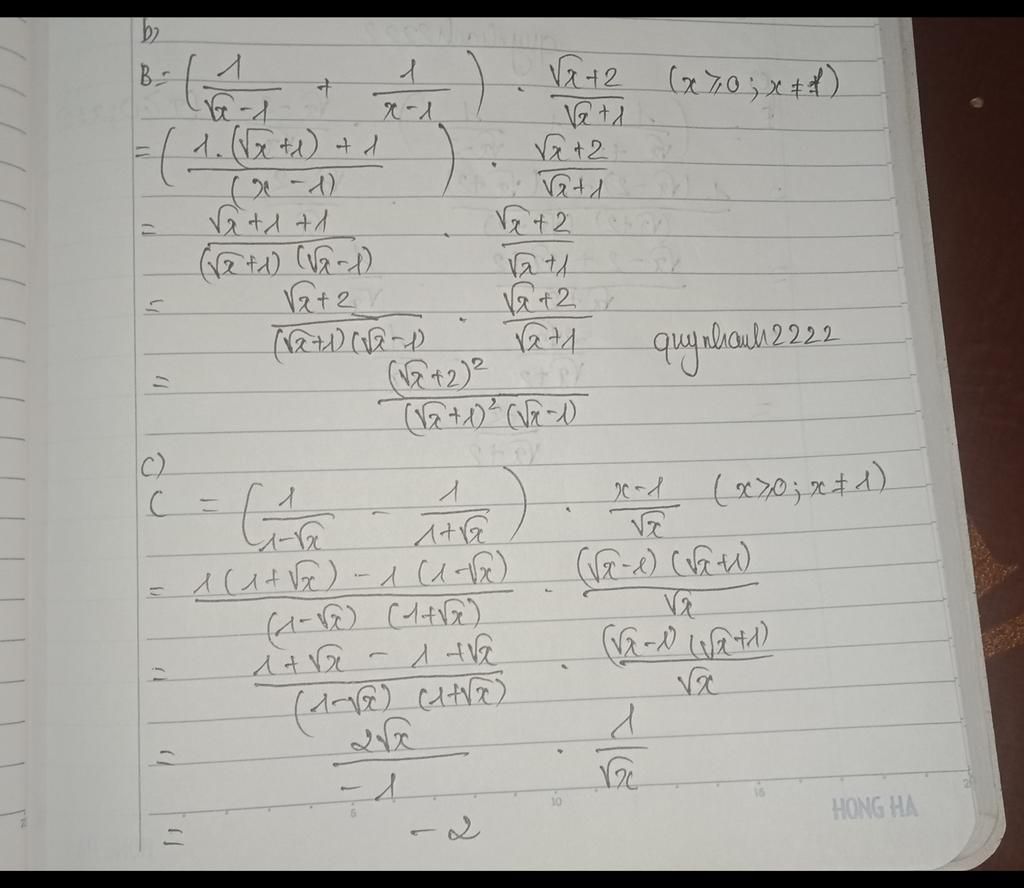 b)
B = ( 1/(√x - 1) + 1/(x - 1) ) . (√x + 2)/(√x + 1) (x ⩾ 0 ; x ≠ 1)
= ( (1.(√x + 1) + 1)/((x - 1)) ) . (√x + 2)/(√x + 1)
= (√x + 1 + 1)/((√x + 1) (√x - 1)) . (√x + 2)/(√x + 1)
= (√x + 2)/((√x + 1) (√x - 1)) . (√x + 2)/(√x + 1) quynhanh2222
= (√x + 2)²/((√x + 1)² (√x - 1))
c)
C = ( 1/(1 - √x) - 1/(1 + √x) ) . (x - 1)/√x (x > 0 ; x ≠ 1)
= (1 (1 + √x) - 1 (1 - √x))/((1 - √x) (1 + √x)) . ((√x - 1) (√x + 1))/√x
= (1 + √x - 1 + √x)/((1 - √x) (1 + √x)) . ((√x - 1) (√x + 1))/√x
= 2√x/(-1) . 1/√x
= - 2
5 10 15 20
HONG HA